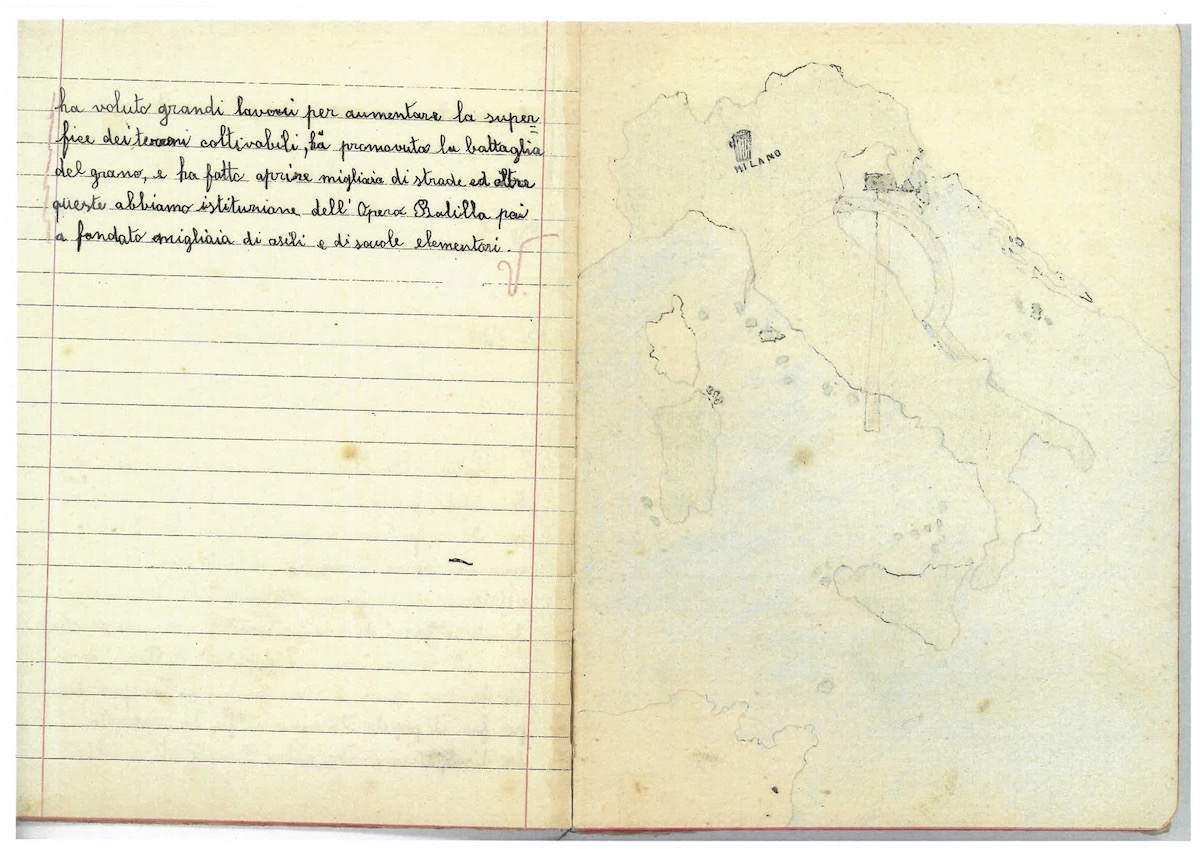 ha voluto grandi lavori per aumentare la super=
fice dei terreni coltivabili, ha promovuto la battaglia
del grano, e ha fatto aprire migliaia di strade ed oltre
queste abbiamo istituzione dell' Opera Balilla poi
a fondato migliaia di asili e di scuole elementari.
MILANO